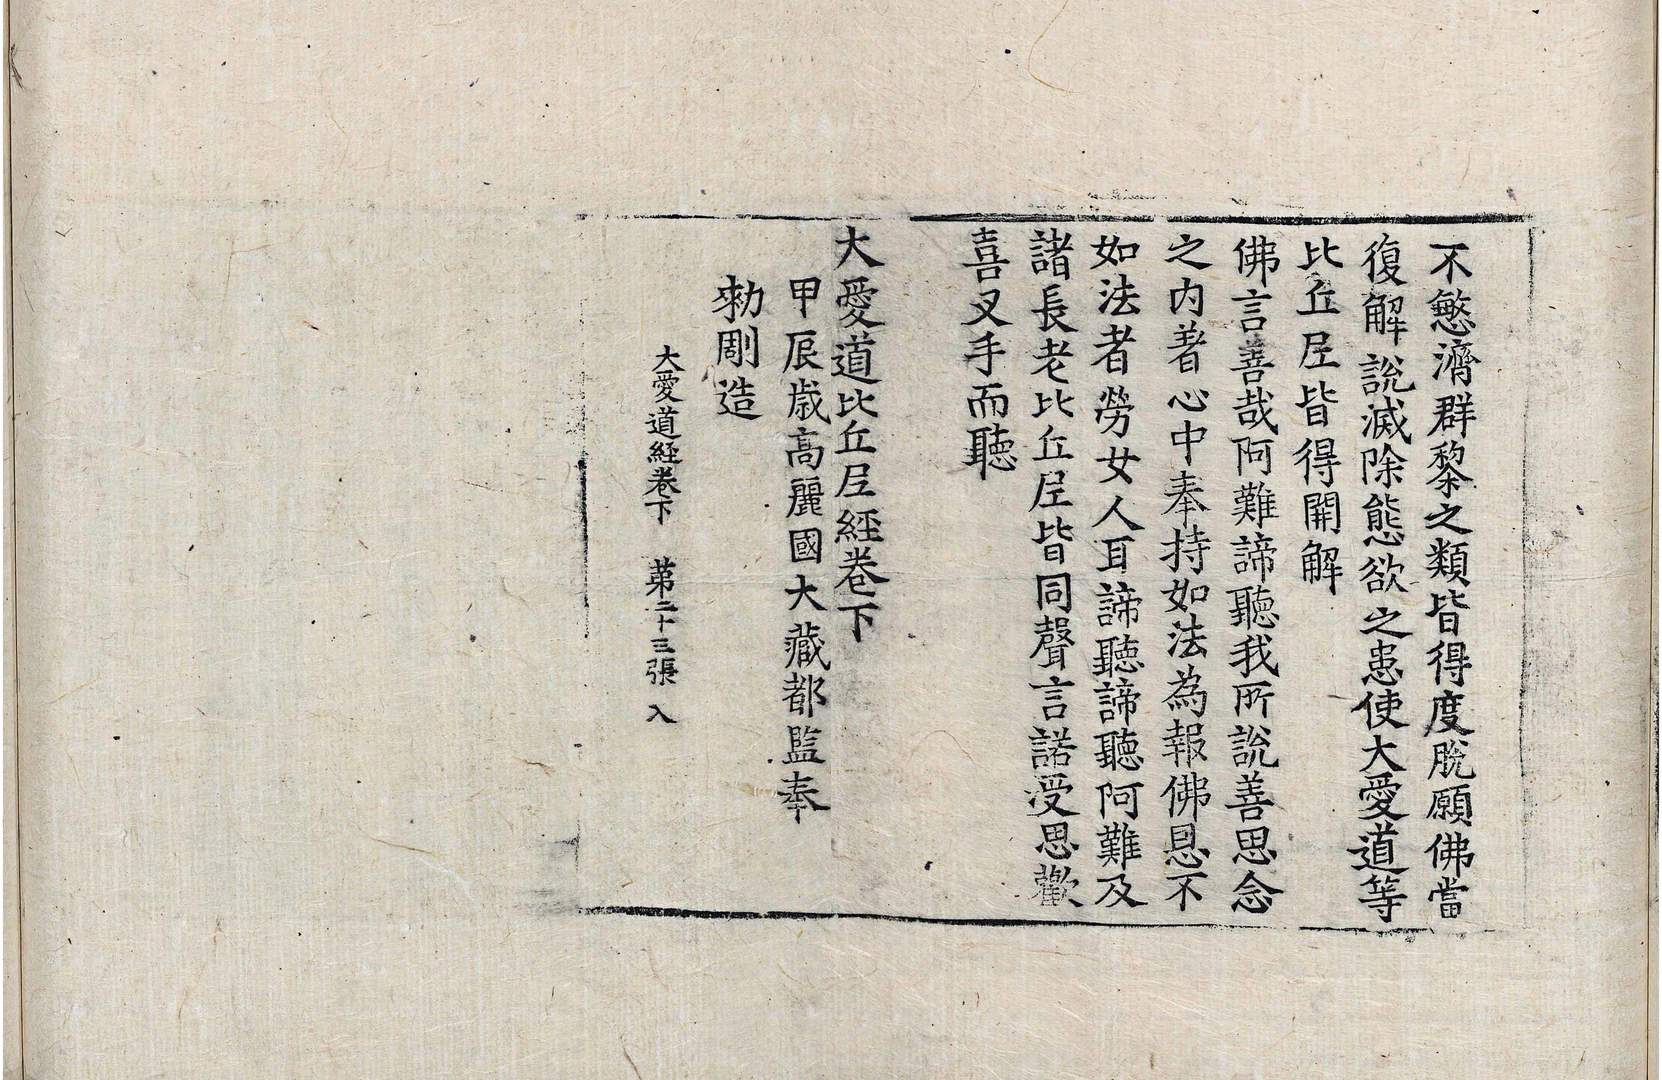 不慜濟群黎之類皆得度脫願佛當
復解說滅除態欲之患使大愛道等
比丘尼皆得開解
佛言善哉阿難諦聽我所說善思念
之内著心中奉持如法為報佛恩不
如法者勞女人耳諦聽諦聽阿難及
諸長老比丘尼皆同聲言諾受思歡
喜叉手而聽
大愛道比丘尼經卷下
甲辰歲高麗國大藏都監奉
勑彫造
大愛道經卷下 第二十三張 入